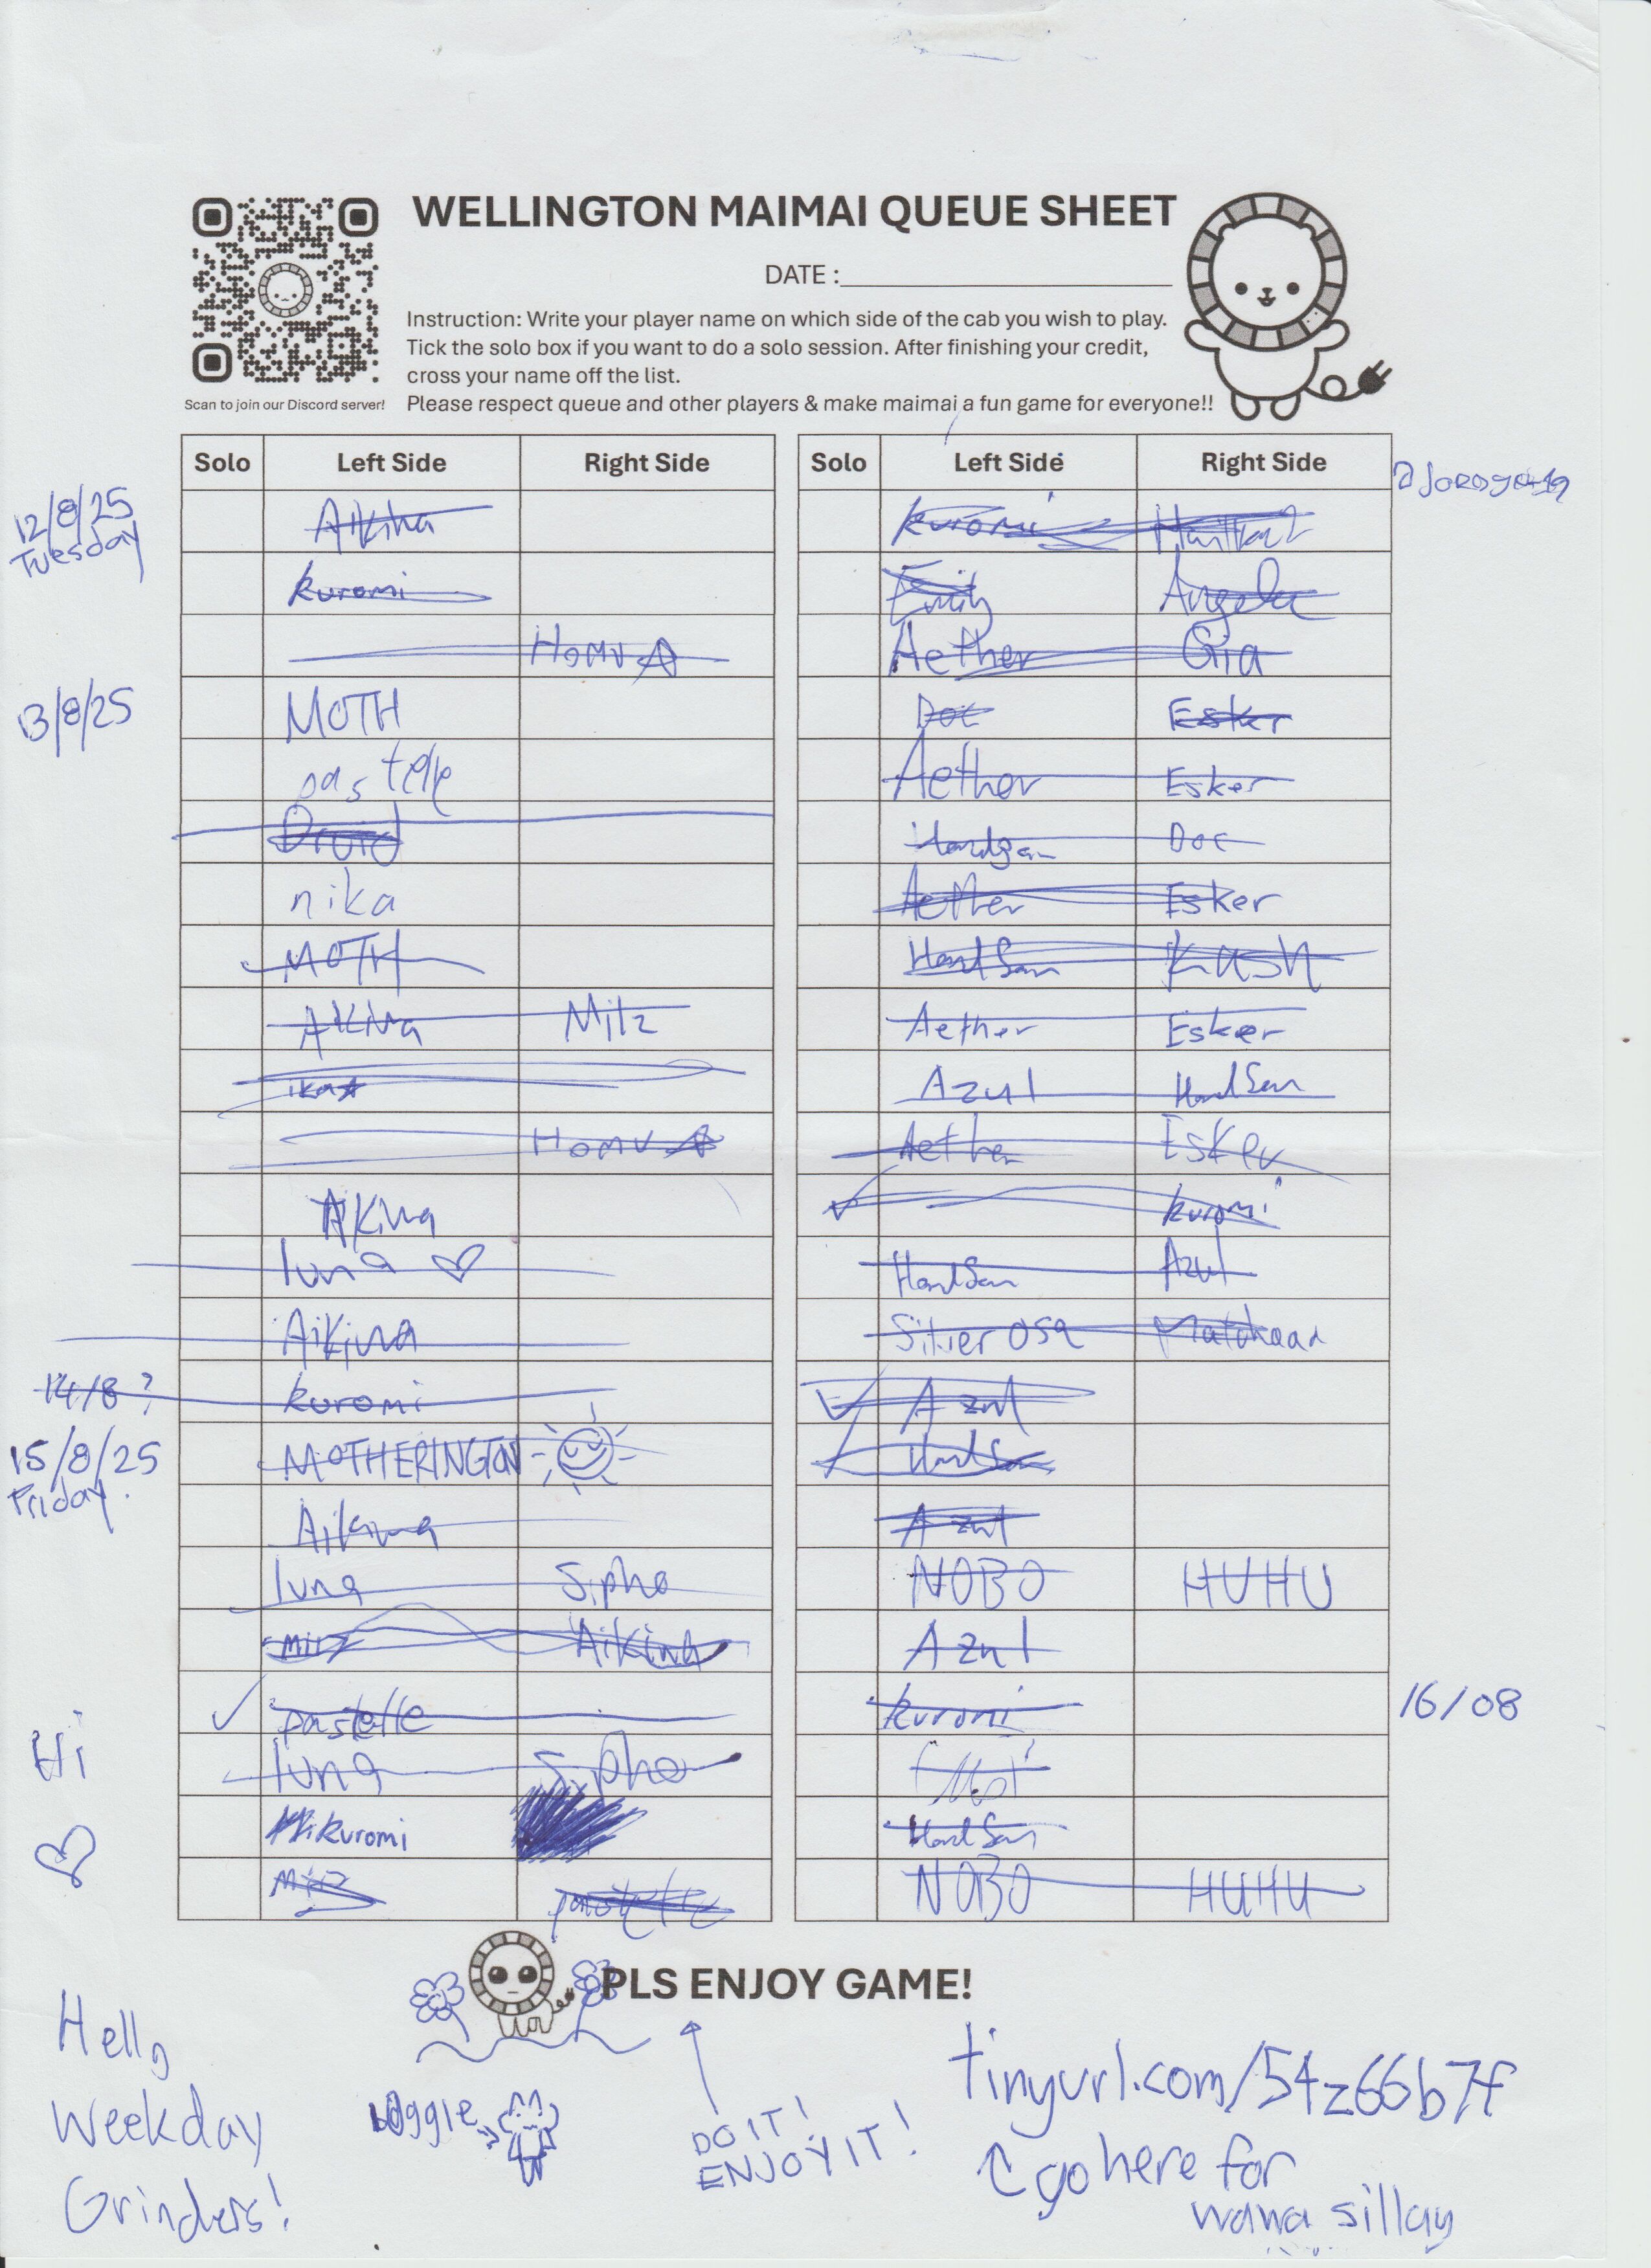 WELLINGTON MAIMAI QUEUE SHEET
DATE :
Instruction: Write your player name on which side of the cab you wish to play.
Tick the solo box if you want to do a solo session. After finishing your credit,
cross your name off the list.
Please respect queue and other players & make maimai a fun game for everyone!!
Scan to join our Discord server!
Solo Left Side Right Side
12/8/25
Tuesday
Aikina
kuromi
Homu☆
13/8/25
MOTH
pastelle
Droid
nika
MOTH
Akina Mitz
ika☆
Homu☆
Akina
luna ♡
Aikina
14/8?
kuromi
15/8/25
Friday.
MOTHERINGTON
Aikina
luna Sipho
Mitz Aikina
✓ pastelle
luna Sipho
kuromi
pastelle
Hi
♡
Solo Left Side Right Side
kuromi
Emily Angela
Aether Gia
Doc Esker
Aether Esker
Doc
Aether Esker
HandSan Kash
Aether Esker
Azul HandSan
Aether Esker
✓ kuromi
HandSan Azul
Azul
HandSan
Azul
NOBO HUHU
Azul
16/08
kuromi
HandSan
NOBO HUHU
PLS ENJOY GAME!
Hello
Weekday
Grinders!
DO IT!
ENJOY IT!
tinyurl.com/54z66b7f
go here for
wawa sillay